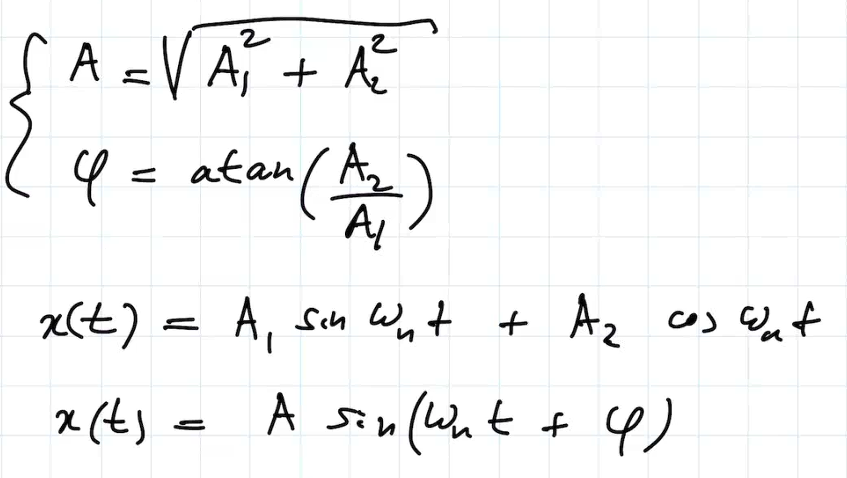 A = √(A₁² + A₂²)
φ = atan(A₂/A₁)
x(t) = A₁ sin ωₙt + A₂ cos ωₙt
x(t) = A sin(ωₙt + φ)